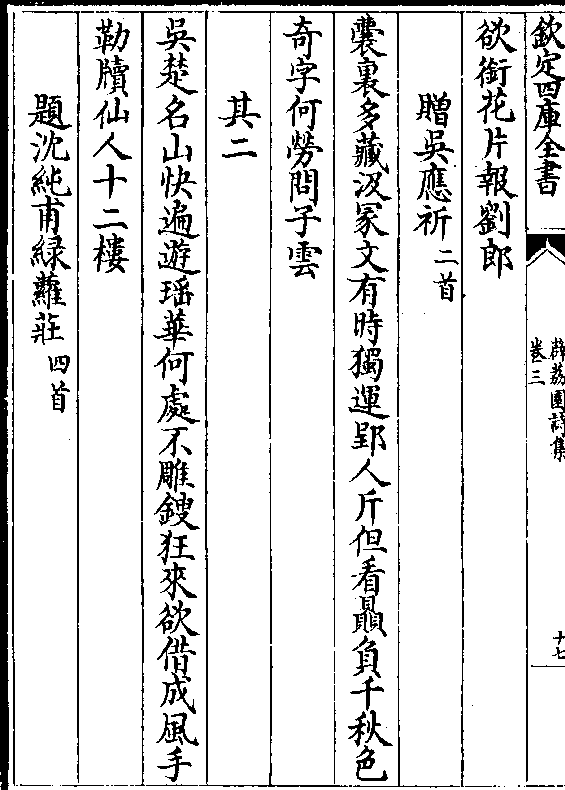 欽定四庫全書
薜荔園詩集
卷三
十七
欲銜花片報劉郎
贈吳應祈二首
囊裏多藏汲冢文有時獨運郢人斤但看贔負千秋色
奇字何勞問子雲
其二
吳楚名山快遍遊瑶華何處不雕鎪狂來欲借成風手
勒牘仙人十二樓
題沈純甫緑蘿莊四首